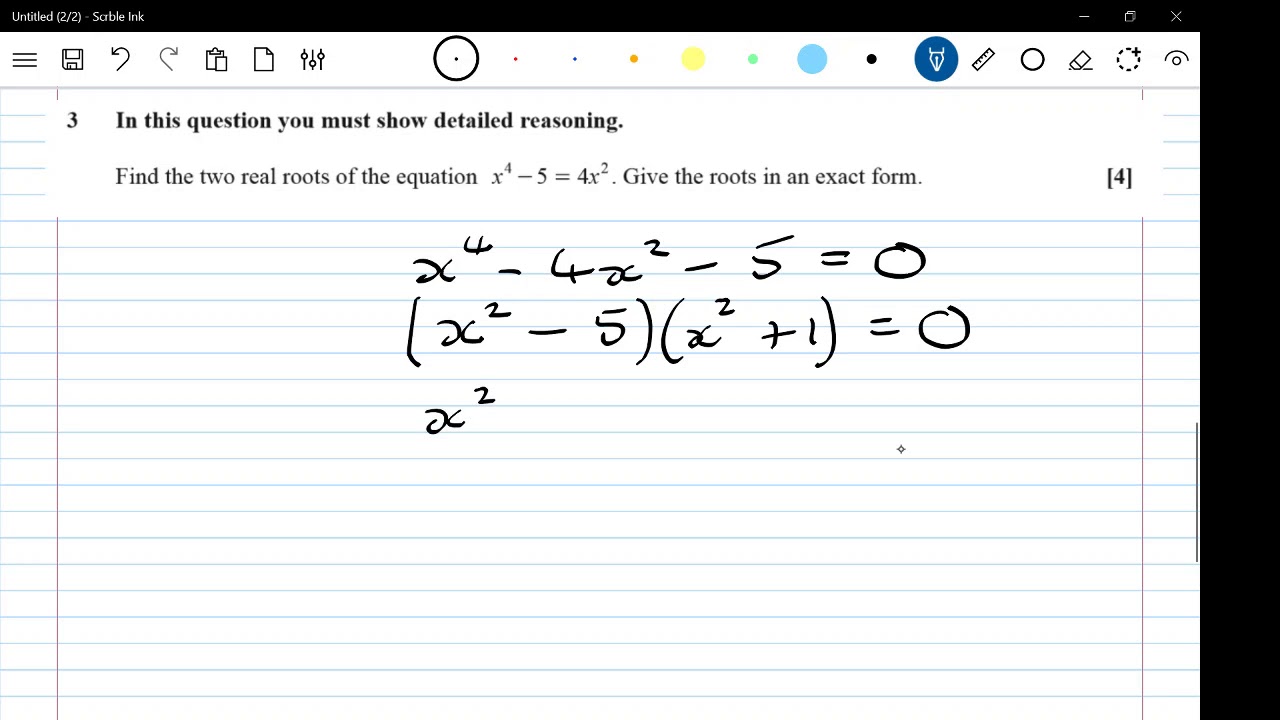 Untitled (2/2) - Scrble Ink
3 In this question you must show detailed reasoning.
Find the two real roots of the equation x⁴ − 5 = 4x². Give the roots in an exact form. [4]
x⁴ - 4x² - 5 = 0
(x² - 5)(x² + 1) = 0
x²